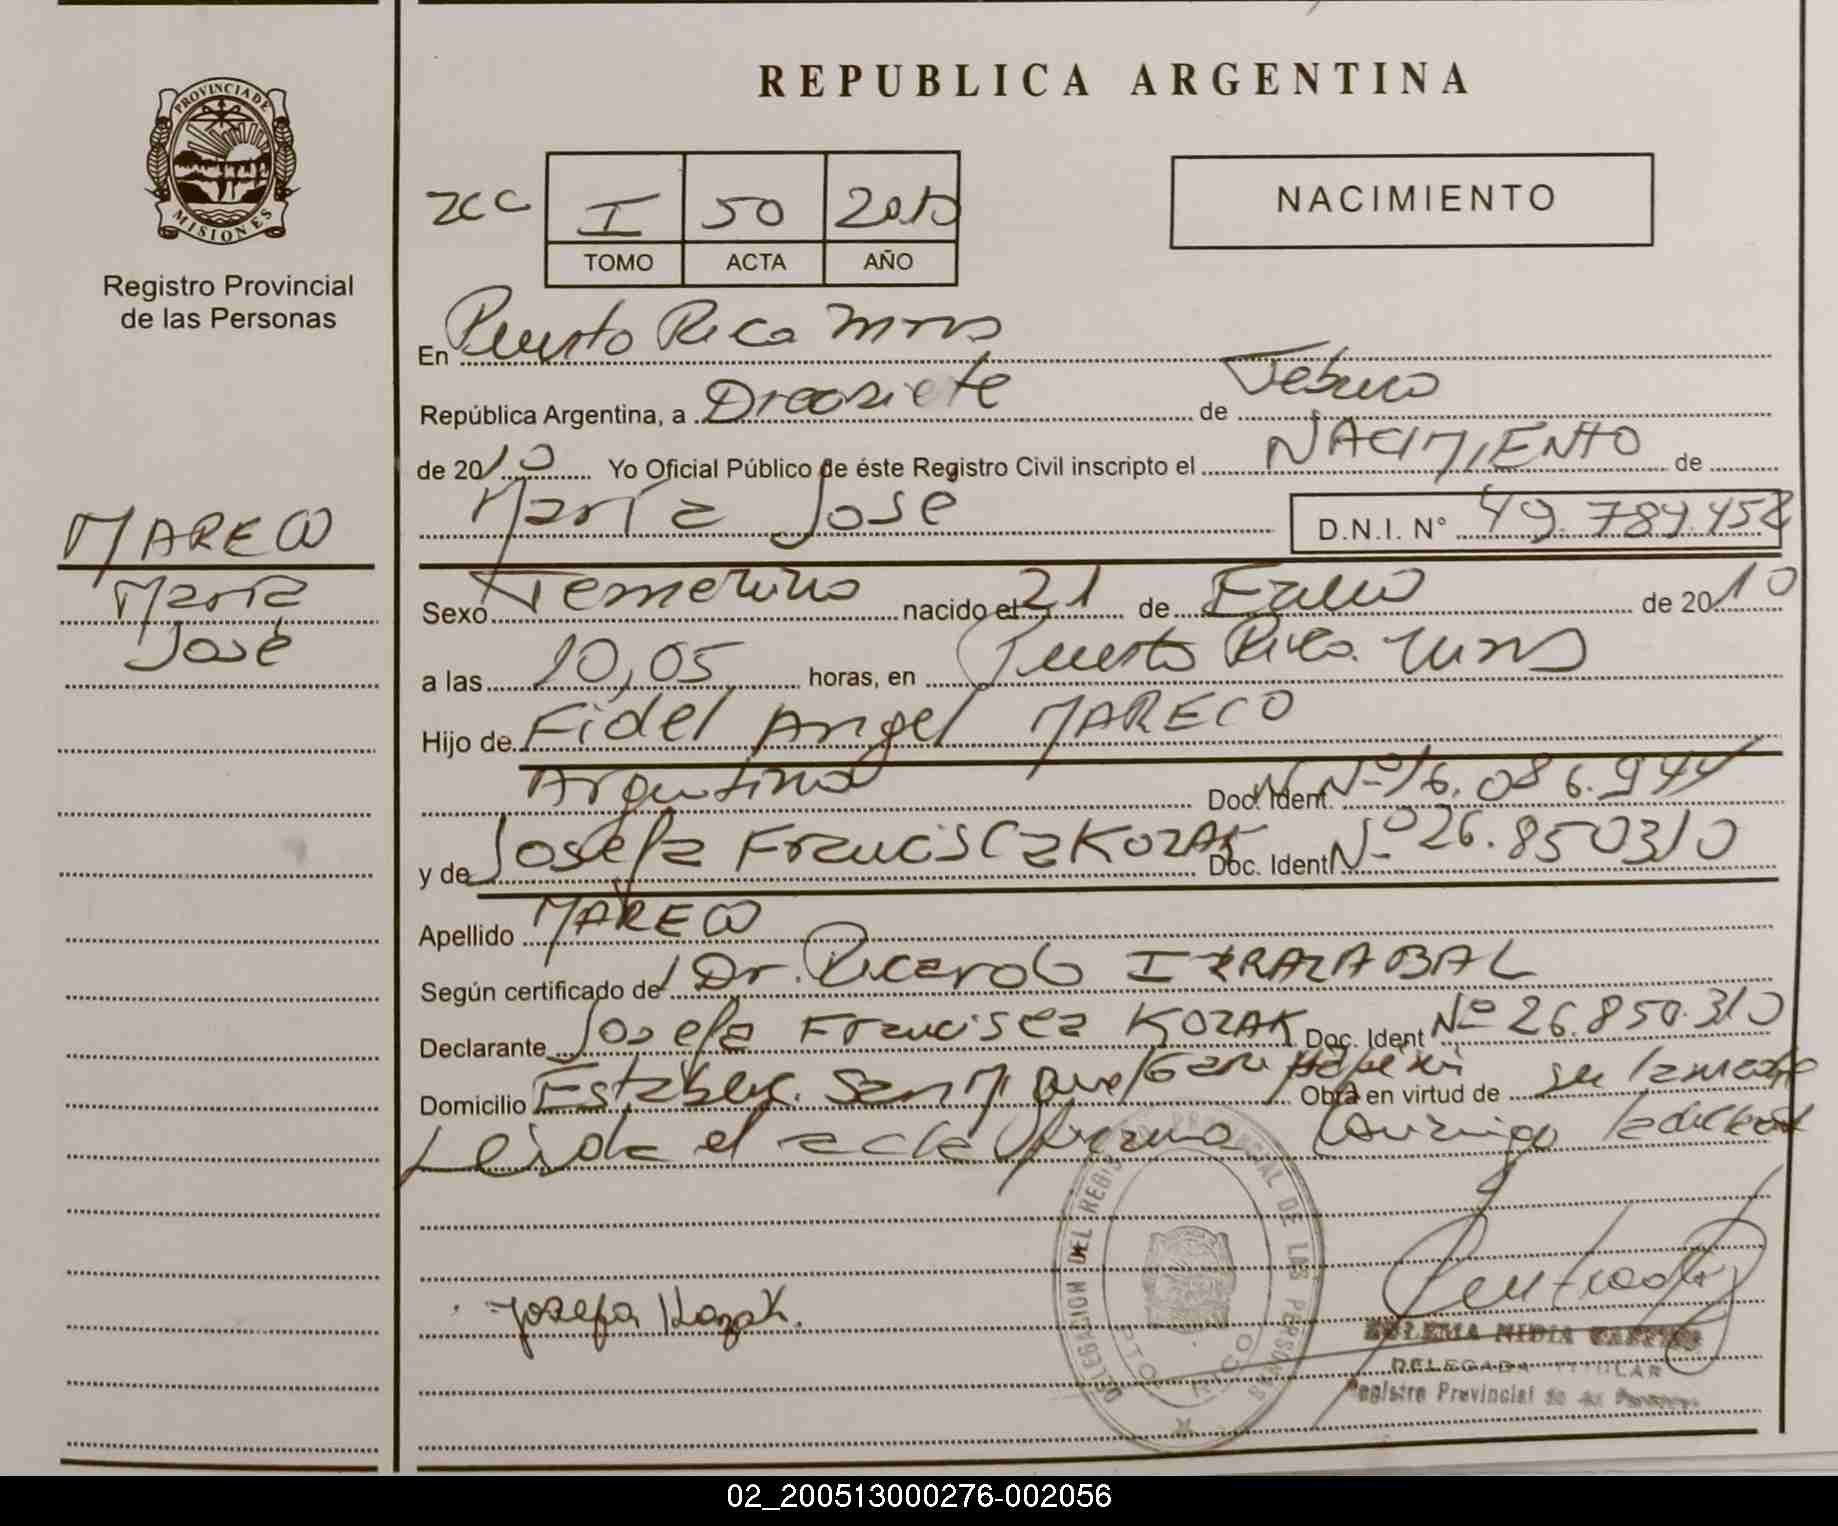 REPUBLICA ARGENTINA
PROVINCIA DE
MISIONES
Registro Provincial
de las Personas
MARECO
María
José
I 50 2010
TOMO ACTA AÑO
NACIMIENTO
En Puerto Rico Mnes
República Argentina, a Diecisiete de Febrero
de 2010 Yo Oficial Público de éste Registro Civil inscripto el NACIMIENTO de
María José D.N.I. N° 49.789.458
Sexo Femenino nacido el 21 de Enero de 2010
a las 10,05 horas, en Puerto Rico. Mnes
Hijo de Fidel Angel MARECO
Argentina Doc. Ident. N° 16.086.944
y de Josefa Francisca KOZAK Doc. Ident N° 26.850310
Apellido MARECO
Según certificado de Dr. Ricardo IRRAZABAL
Declarante Josefa Francisca KOZAK Doc. Ident N° 26.850.310
Domicilio Establec. San Miguel Garuhapé Mi Obra en virtud de su
Leida el acta firma Conmigo la declarante
Josefa Kozak.
DELEGACION DEL REGISTRO PROVINCIAL DE LAS PERSONAS
PTO RICO
ZULEMA NIDIA
DELEGADA TITULAR
Registro Provincial de las Personas
02_200513000276-002056